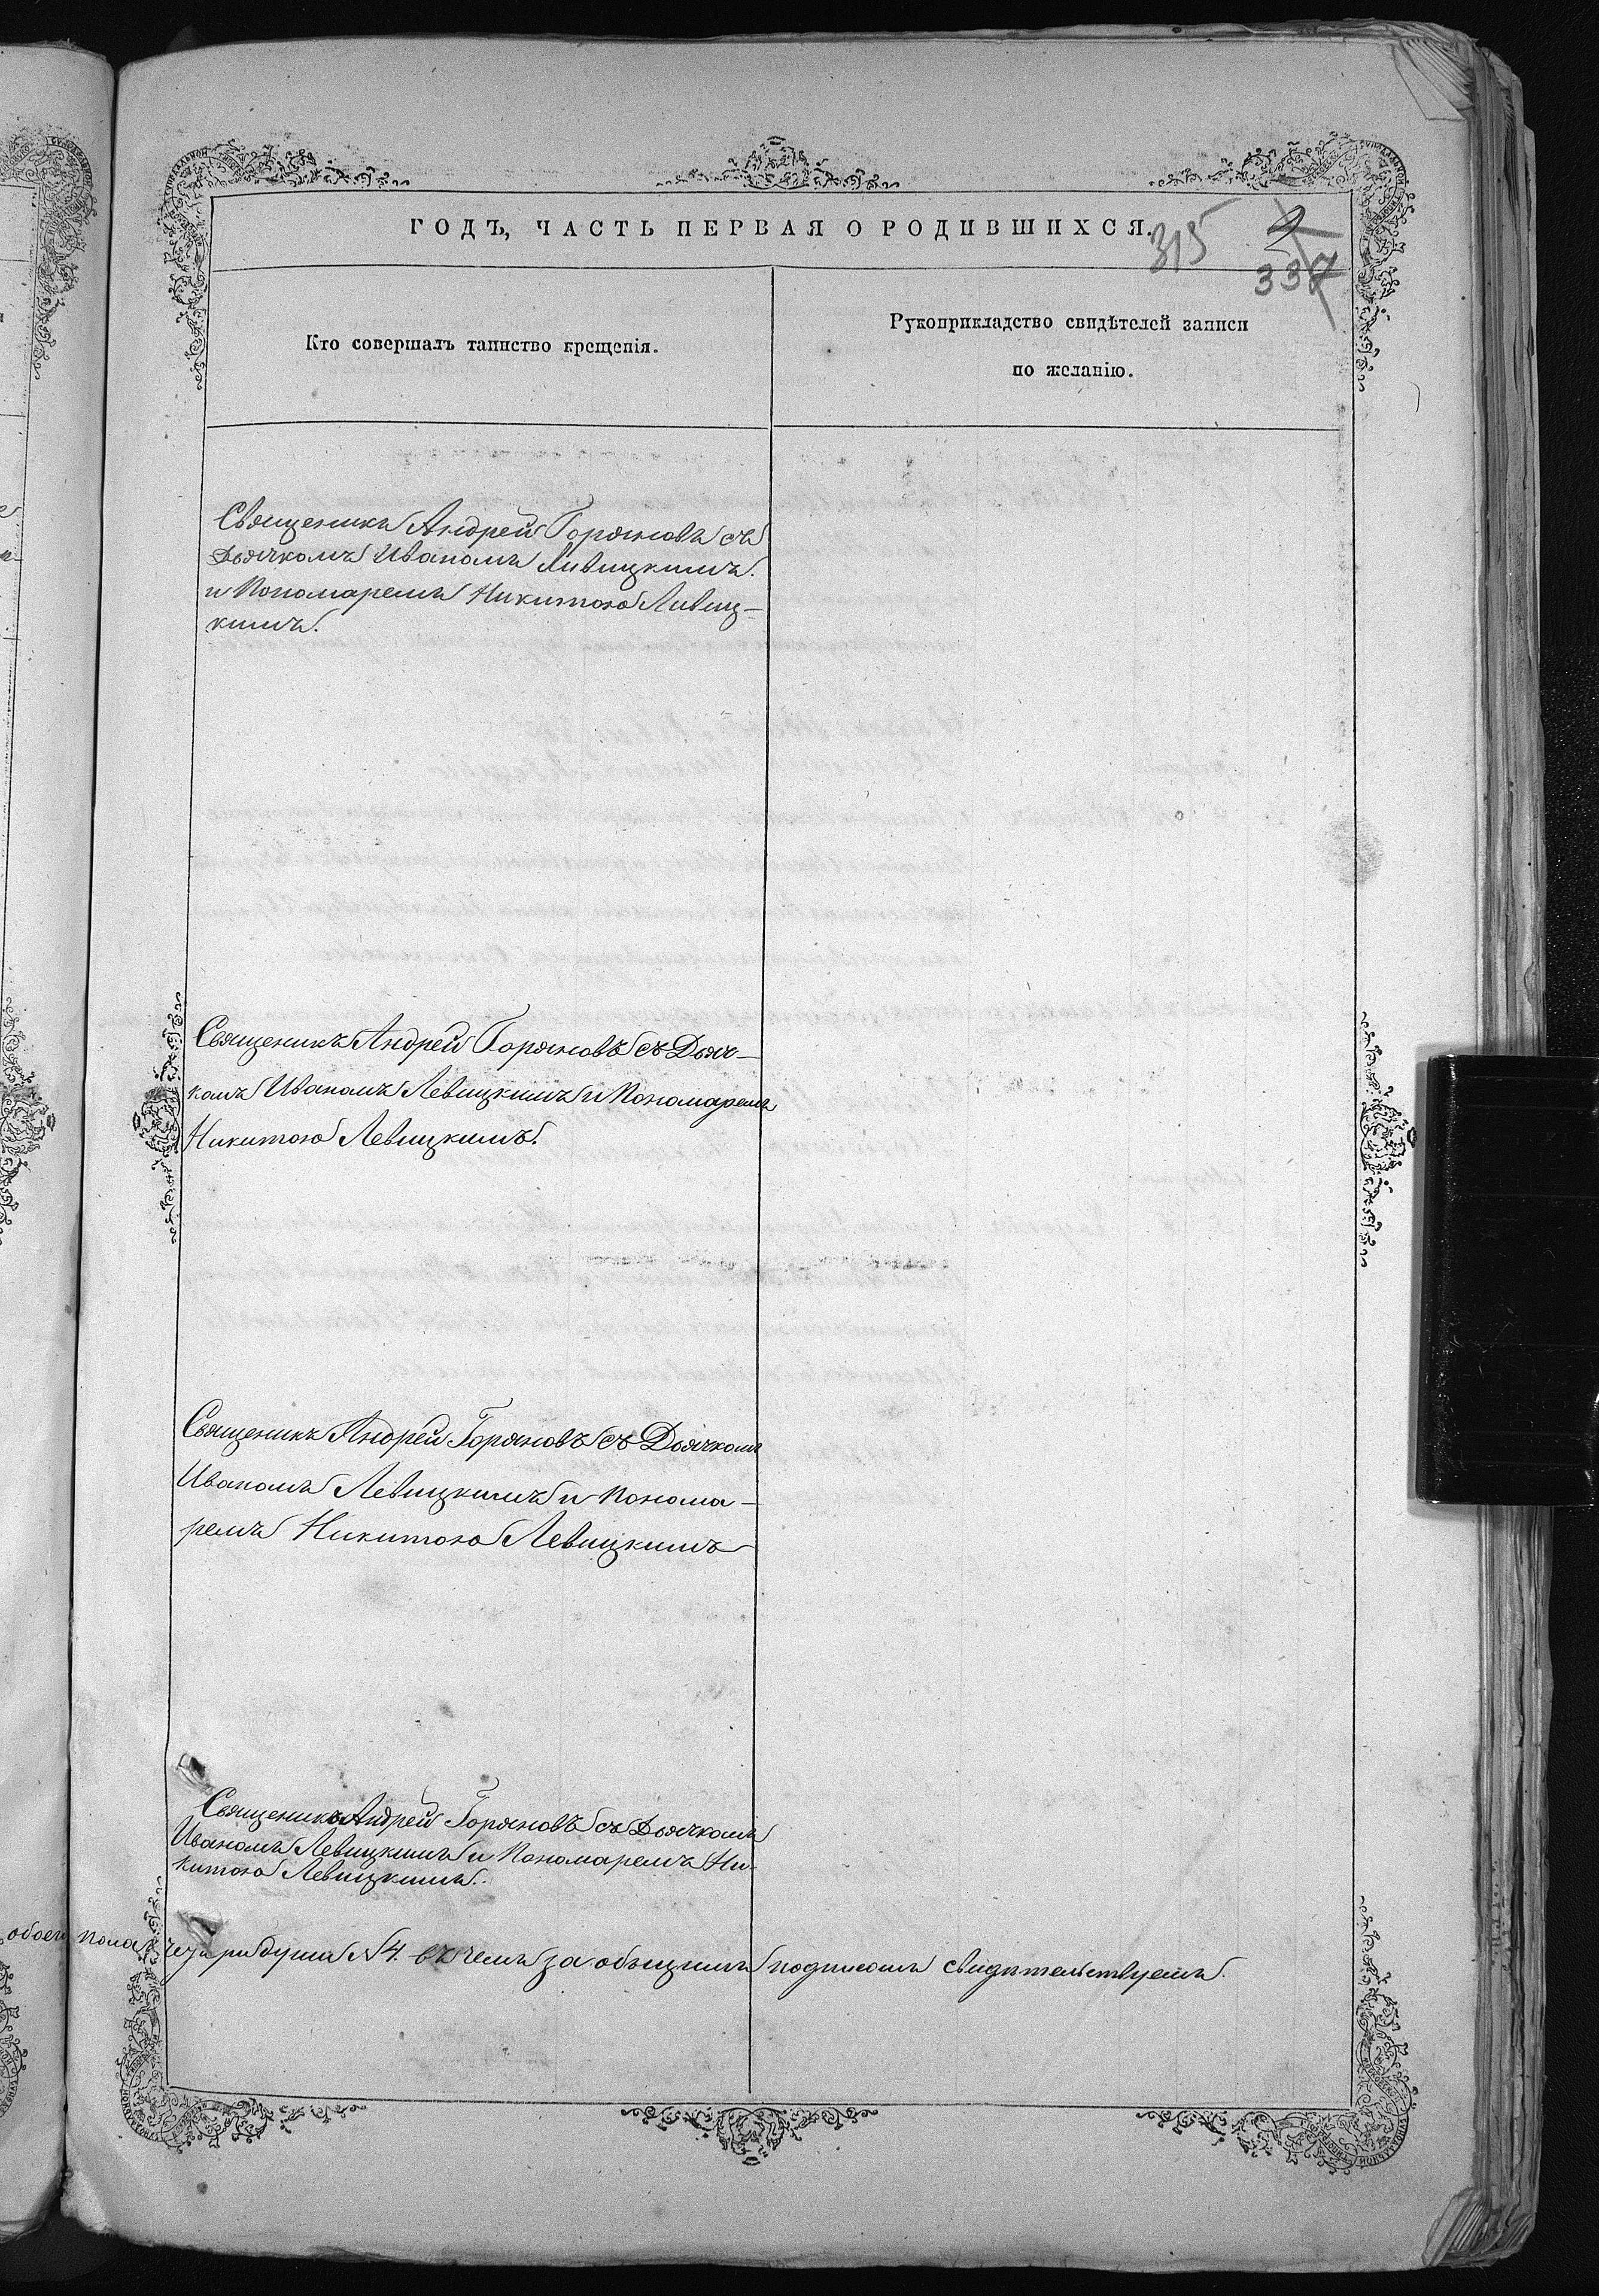 ГОДЪ, ЧАСТЬ ПЕРВАЯ О РОДИВШИХСЯ.
315
337
Кто совершалъ таинство крещенія.
Рукоприкладство свидѣтелей записи
по желанію.
Священикъ Андрей Горяновъ съ
Дьячкомъ ИваномъЛивицкимъ.
и Пономаремъ Никитою Ливиц-
кимъ.
Священикъ Андрей Горяновъ съ Дьяч-
комъ Иваномъ Левицкимъ и Пономаремъ
Никитою Левицкимъ.
Священикъ Андрей Горяновъ съ Дьячкомъ
Иваномъ Левицкимъ и Понома-
ремъ Никитою Левицкимъ
Священикъ Андрей Горяновъ съ Дьячкомъ
Иваномъ Левицкимъ и Пономаремъ Ни-
китою Левицкимъ.
обоего пола души № 4. въ чемъ за общимъ подписомъ свидѣтельствуемъ.